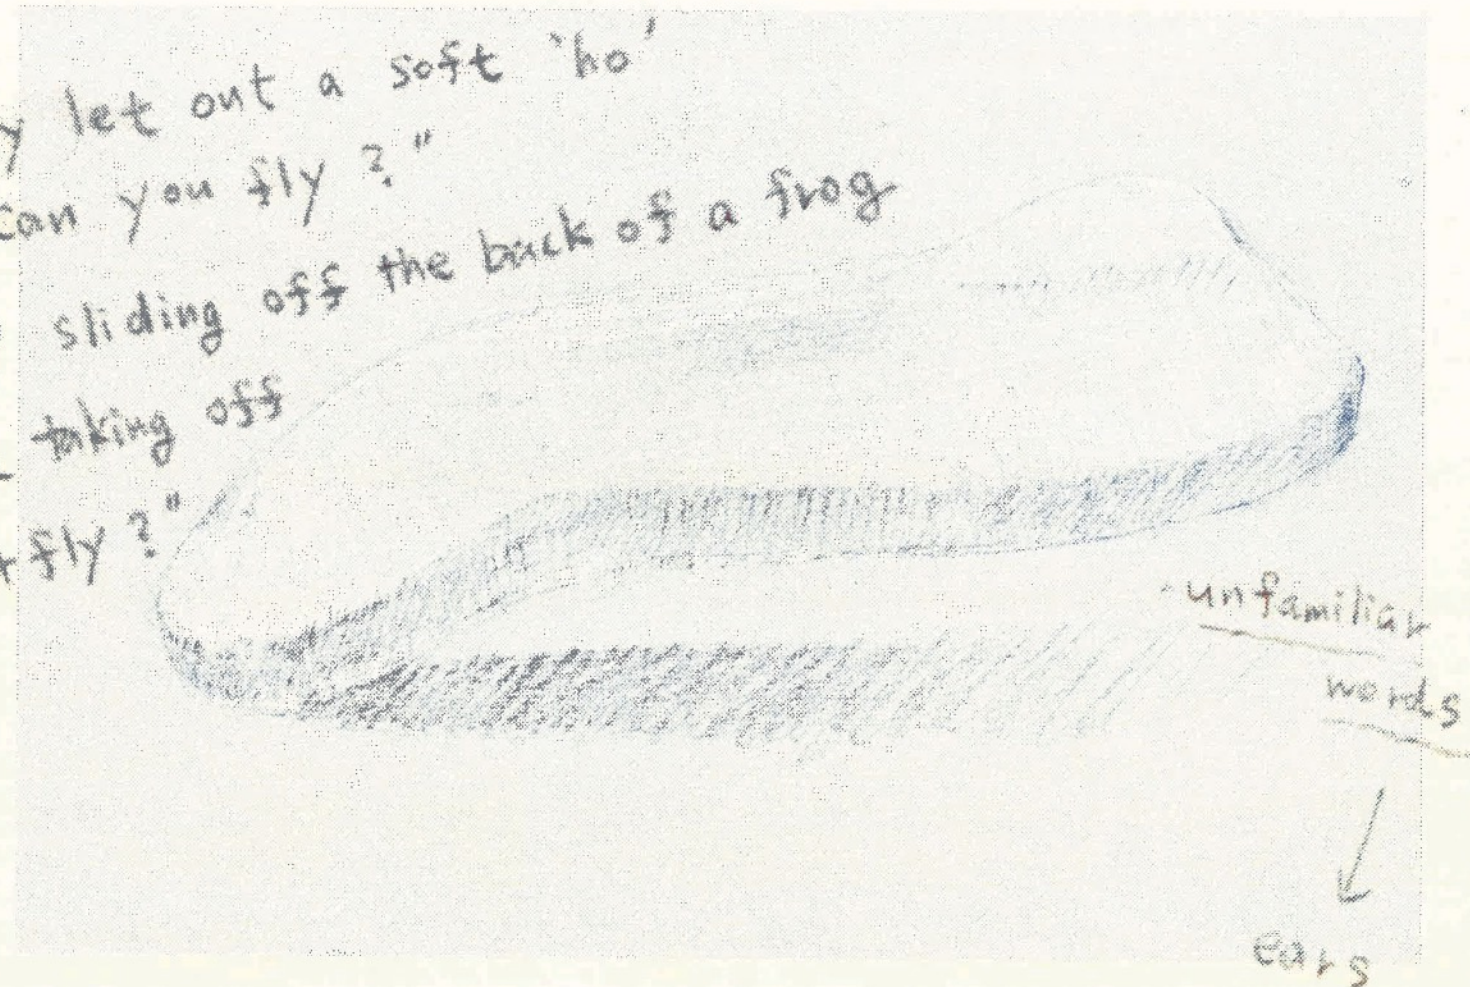 y let out a soft 'ho'
can you fly ?"
sliding off the back of a frog
taking off
fly ?"
unfamiliar
words
ears